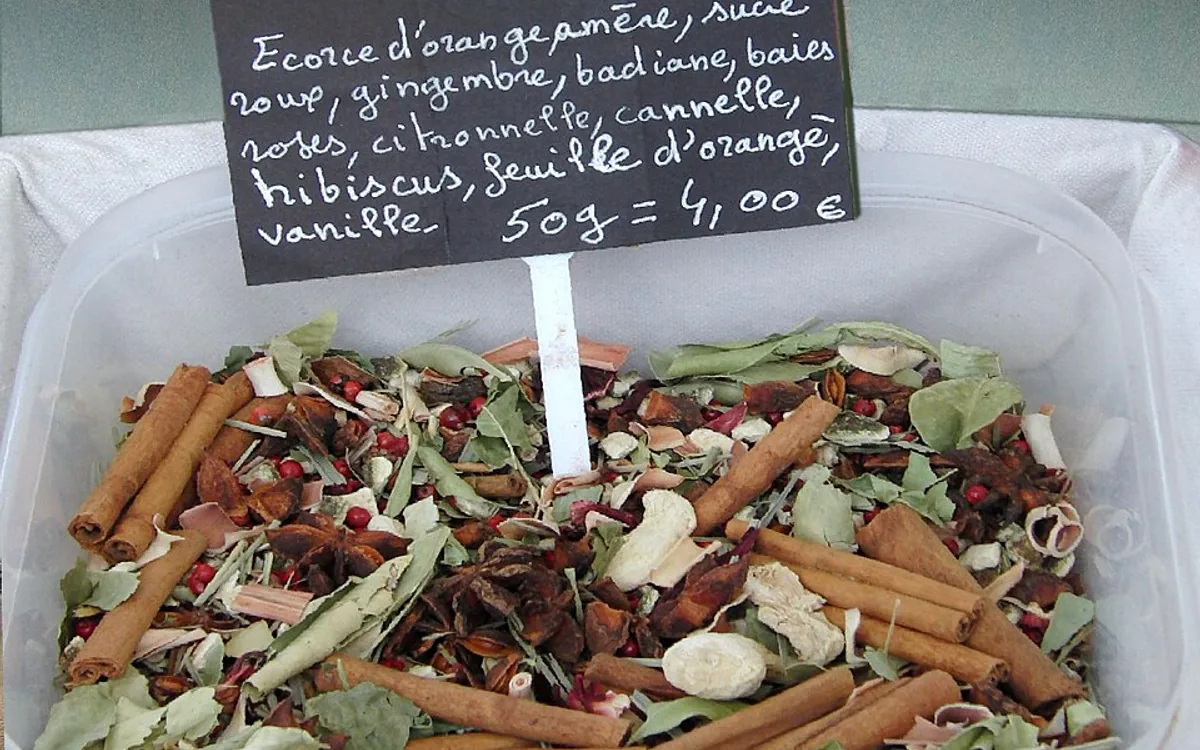 Ecorce d'orange amère, sucre
roux, gingembre, badiane, baies
roses, citronnelle, cannelle,
hibiscus, feuille d'orange,
vanille. 50g = 4,00 €